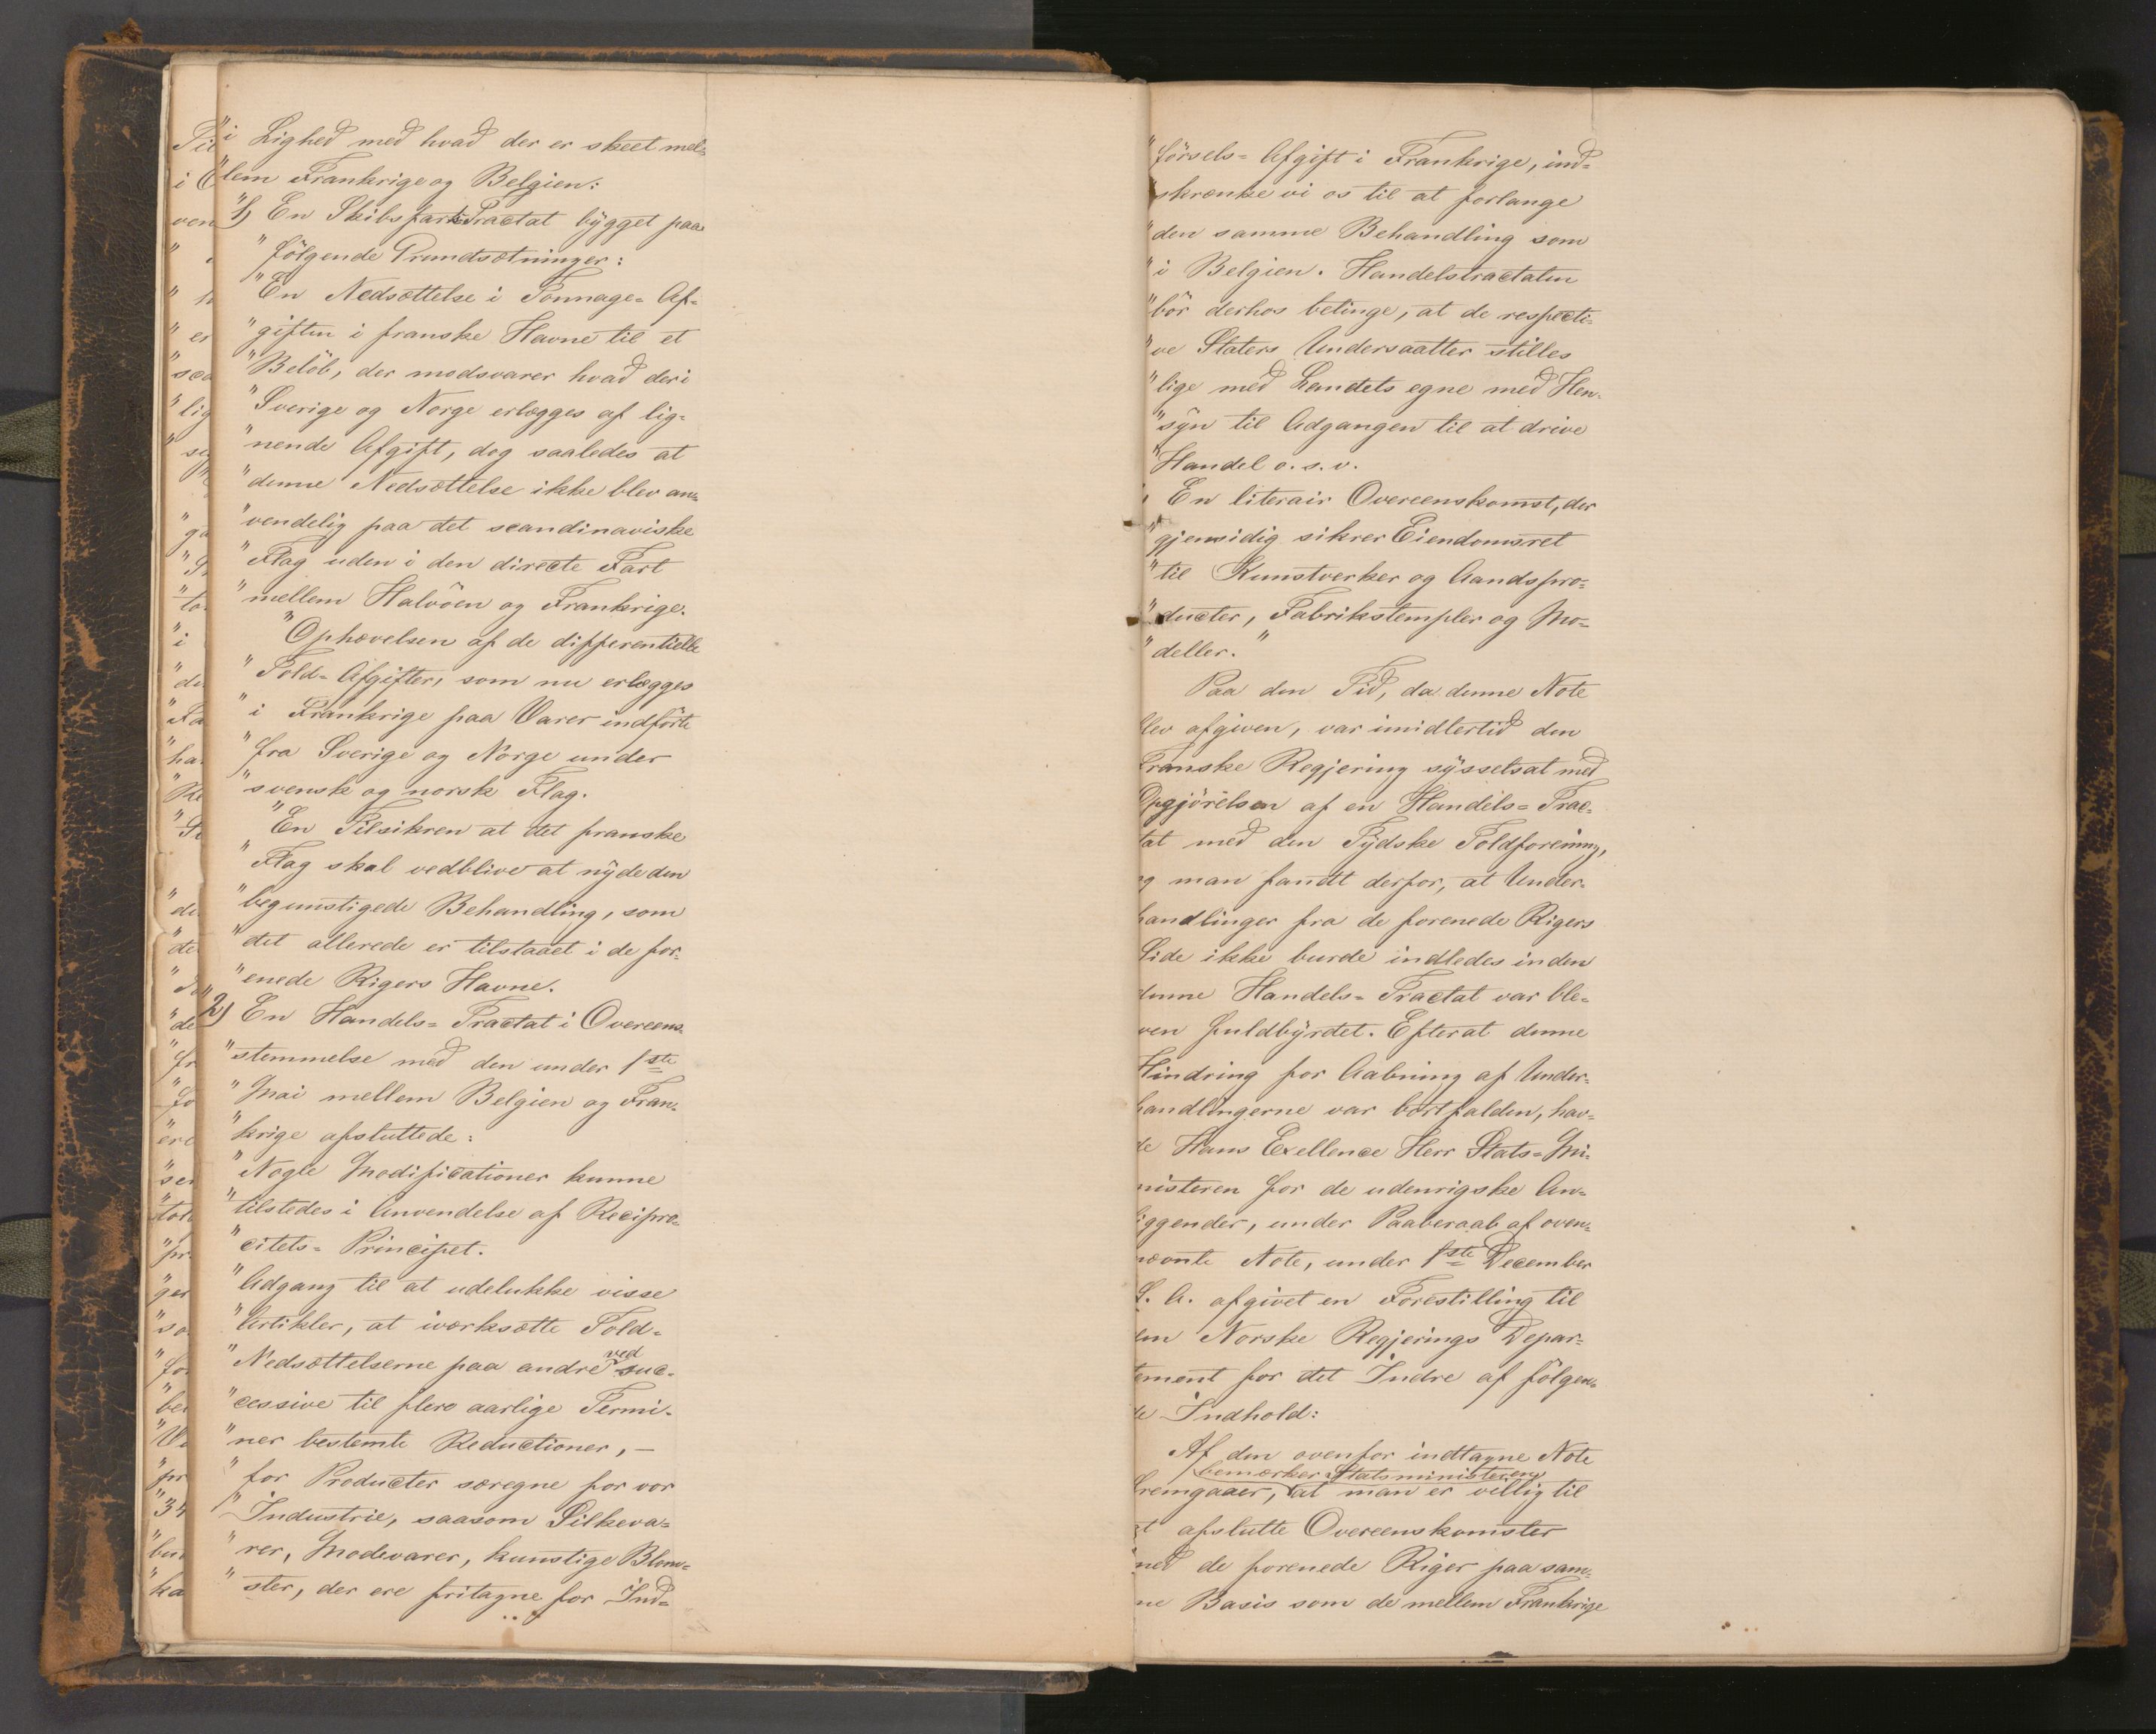 "i Lighed med hvad der er skeet mel=
"lem Frankrige og Belgien:
"1) En Skibsfarts Tractat bÿgget paa
"fölgende Grundsætninger:
"En Nedsættelse i Tonnage= Af=
"giften i franske Havne til et
"Belöb, der modsvarer hvad der i
"Sverige og Norge erlægges af lig=
"nende Afgift, dog saaledes at
"denne Nedsættelse ikke blev an=
"vendelig paa det scandinaviske
"Flag uden i den directe Fart
"mellem Halvöen og Frankrige.
"Ophævelsen af de differentielle
"Told= Afgifter, som nu erlægges
"i Frankrige paa Varer indförte
"fra Sverige og Norge under
"svensk og norsk Flag.
"En Tilsikren at det franske
"Flag skal vedblive at nÿde den
"begunstigede Behandling, som
"det allerede er tilstaaet i de for=
"enede Rigers Havne.
"2) En Handels= Tractat i Overeens=
"stemmelse med den under 1ste
"Mai mellem Belgien og Fran=
"krige afsluttede:
"Nogle Modificationer kunne
"tilstedes i Anvendelse af Recipro=
"citets= Principet.
"Adgang til at udelukke visse
"Artikler, at iværksætte Told=
"Nedsættelserne paa andre ved suc=
"cessive til flere aarlige Termi=
"ner bestemte Reductioner, —
"for Producter særegne for vor
"Industrie, saasom Silkeva=
"rer, Modevarer, kunstige Blom=
"ster, der ere fritagne for Ind=
"försels= Afgift i Frankrige, ind=
"skrænke vi os til at forlange
"den samme Behandling som
"i Belgien. Handelstractaten
"bör derhos betinge, at de respecti=
"ve Staters Undersaatter stilles
"lige med Landets egne med Hen=
"sÿn til Adgangen til at drive
"Handel o. s. v.
En literair Overeenskomst, der
"gjensidig sikrer Eiendomsret
"til Kunstverker og Aandspro=
"ducter, Fabrikstempler og Mo=
"deller."
Paa den Tid, da denne Note
blev afgiven, var imidlertid den
Franske Regjering sÿsselsat med
Opgjörelsen af en Handels= Trac=
tat med den Tÿdske Toldforening,
og man fandt derfor, at Under=
handlinger fra de forenede Rigers
Side ikke burde indledes inden
denne Handels= Tractat var ble=
ven fuldbÿrdet. Efterat denne
Hindring for Aabning af Under=
handlingerne var bortfalden, hav=
de Hans Exellence Herr Stats= Mi=
nisteren for de udenrigske An=
liggender, under Paaberaab af oven=
nævnte Note, under 1ste December
S. A. afgivet en Forestilling til
den Norske Regjerings Depar=
tement for det Indre af fölgen=
de Indhold:
Af den ovenfor indtagne Note
bemærker Statsministeren,
fremgaaer, at man er villig til
at afslutte Overeenskomster
med de forenede Riger paa sam=
me Basis som de mellem Frankrige